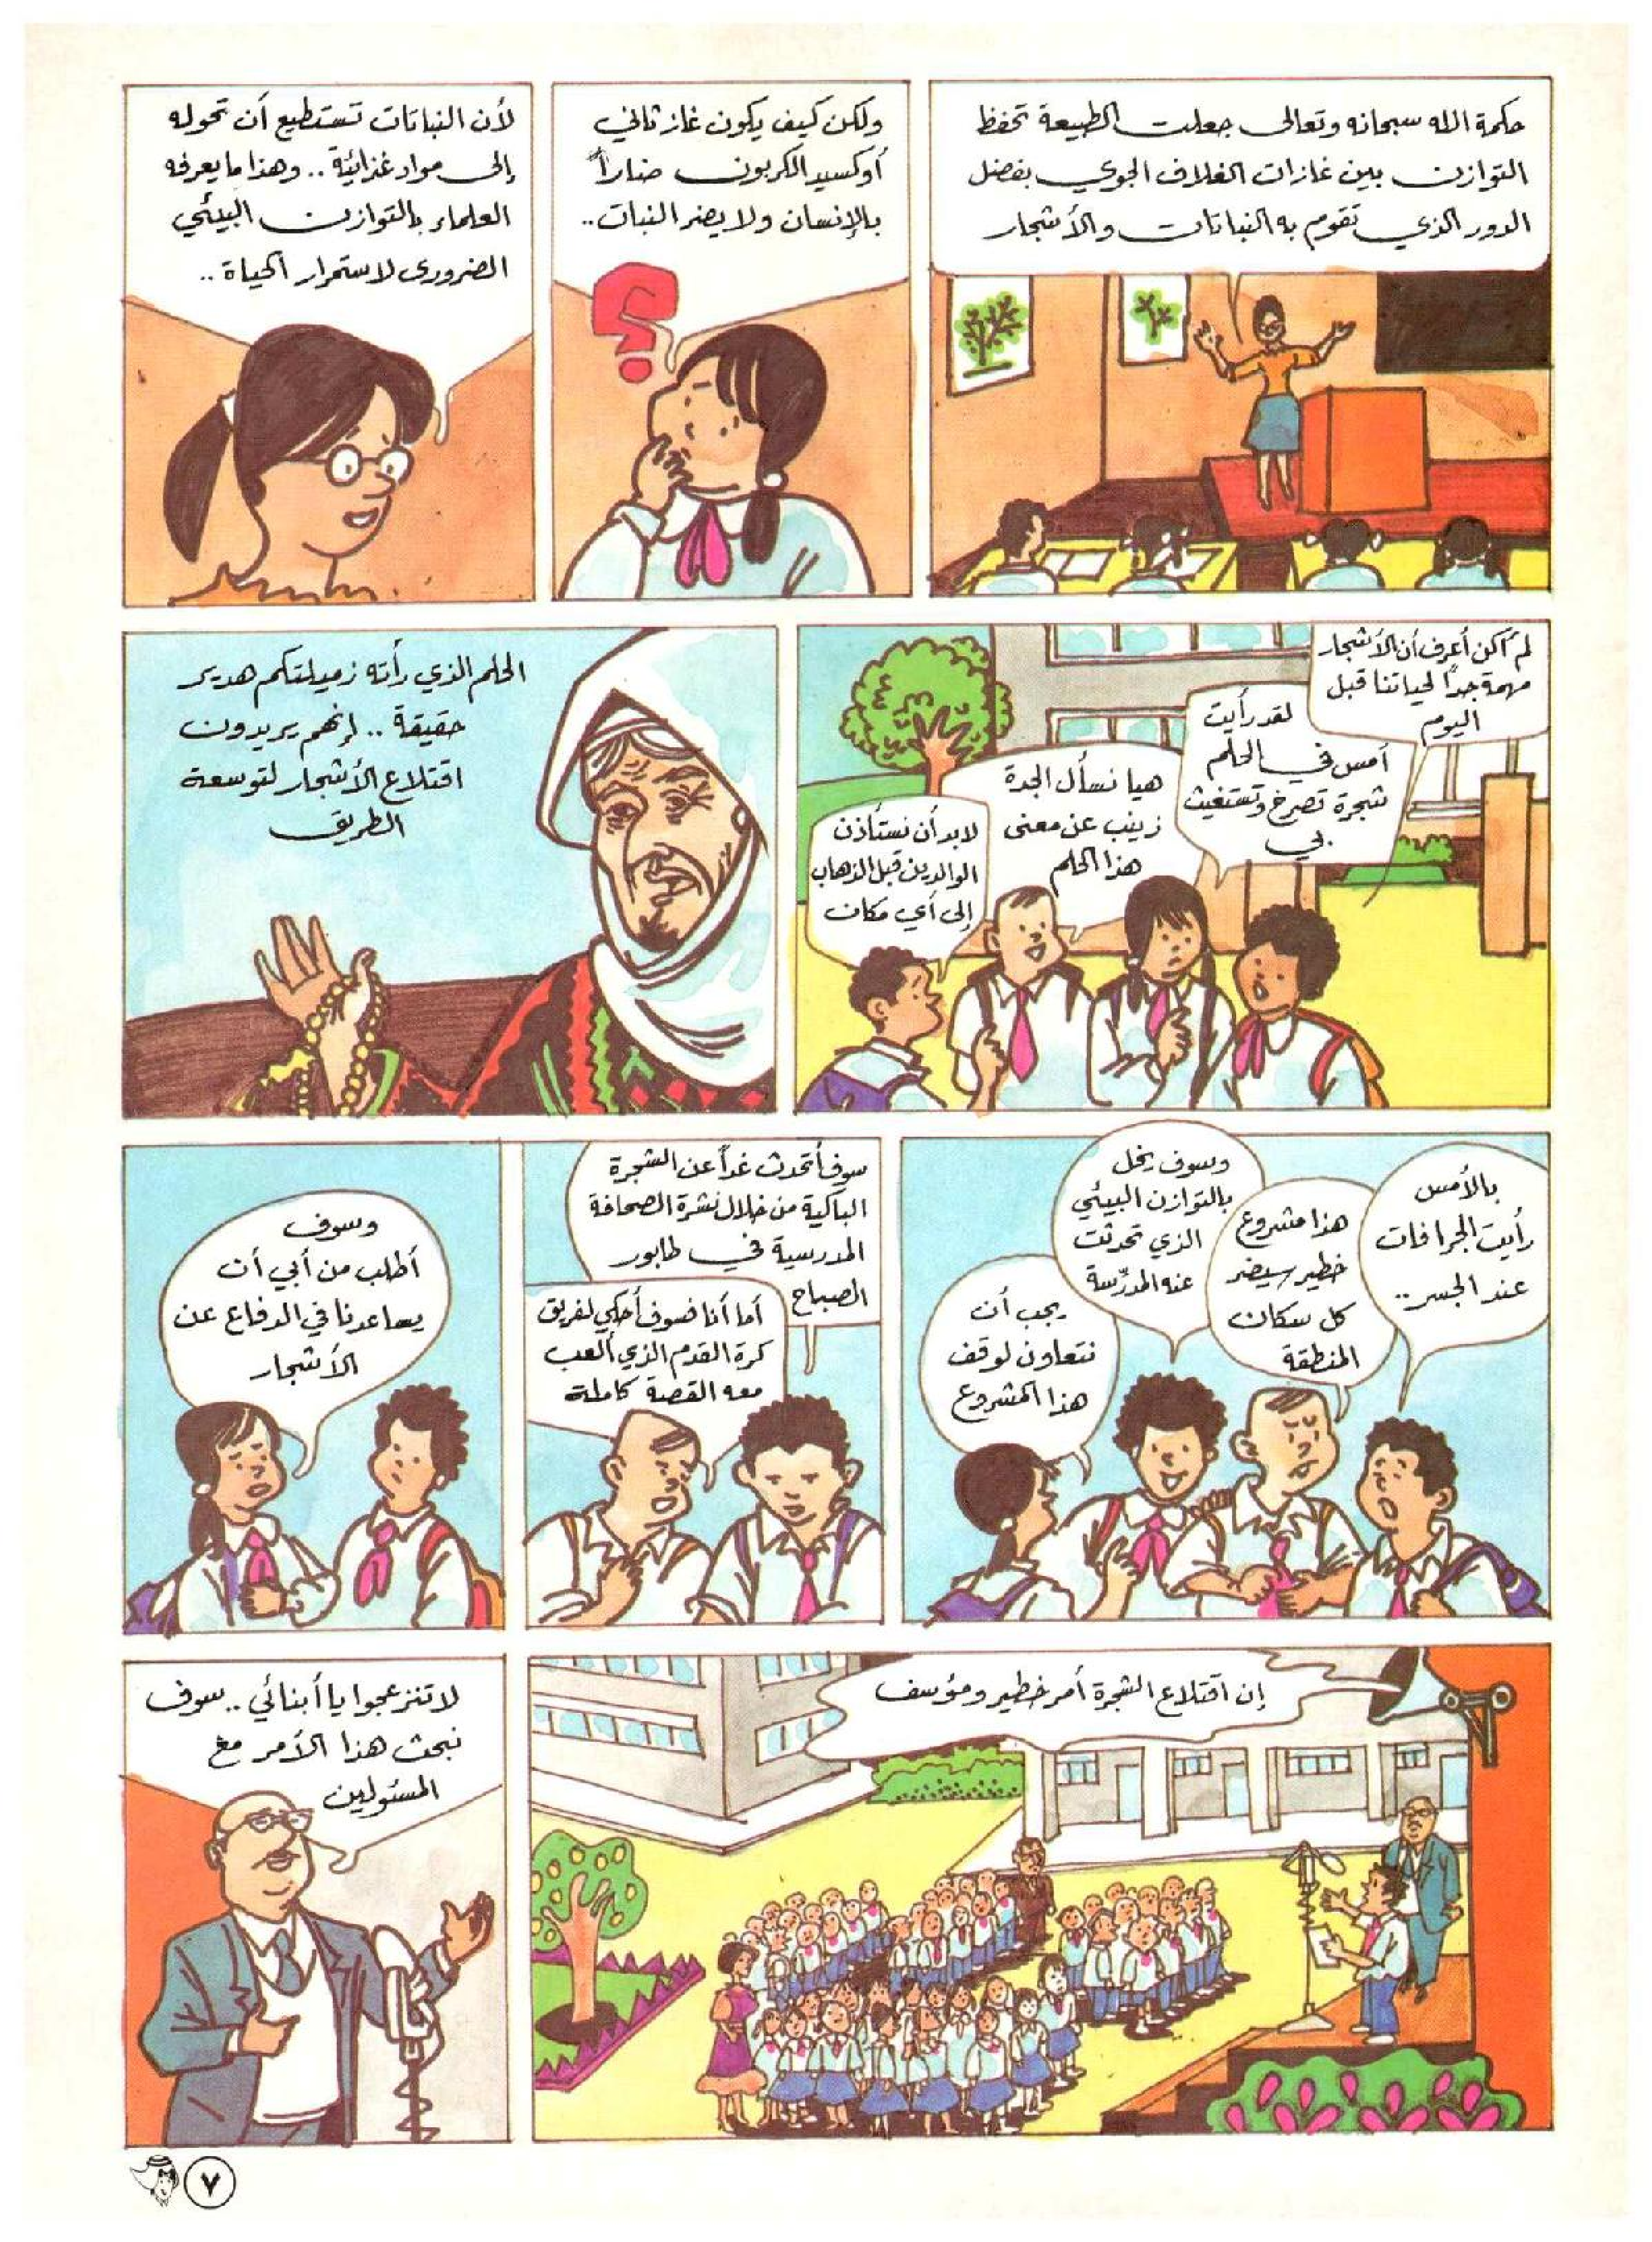 حكمة الله سبحانه وتعالى جعلت الطبيعة تحفظ
التوازن بين غازات الغلاف الجوي بفضل
الدور الذي تقوم به النباتات والأشجار
ولكن كيف يكون غاز ثاني
أوكسيد الكربون ضاراً
بالإنسان ولا يضر النبات ..
؟
لأن النباتات تستطيع أن تحوله
إلى مواد غذائية .. وهذا ما يعرفه
العلماء بالتوازن البيئي
الضرورى لاستمرار الحياة ..
لم أكن أعرف أن الأشجار
مهمة جداً لحياتنا قبل
اليوم
لقد رأيت
أمس في الحلم
شجرة تصرخ وتستغيث
بي
هيا نسأل الجدة
زينب عن معنى
هذا الحلم
لابد أن نستأذن
الوالدين قبل الذهاب
إلى أي مكان
الحلم الذي رأته زميلتكم هدير
حقيقة .. إنهم يريدون
اقتلاع الأشجار لتوسعة
الطريق
بالأمس
رأيت الجرافات
عند الجسر ..
هذا مشروع
خطير سيضر
كل سكان
المنطقة
وسوف يخل
بالتوازن البيئي
الذي تحدثت
عنه المدرّسة
يجب أن
نتعاون لوقف
هذا المشروع
سوف أتحدث غداً عن الشجرة
الباكية من خلال نشرة الصحافة
المدرسية في طابور
الصباح
أما أنا فسوف أحكي لفريق
كرة القدم الذي ألعب
معه القصة كاملة
وسوف
أطلب من أبي أن
يساعدنا في الدفاع عن
الأشجار
إن اقتلاع الشجرة أمر خطير ومؤسف
لا تنزعجوا يا أبنائي .. سوف
نبحث هذا الأمر مع
المسئولين
٧